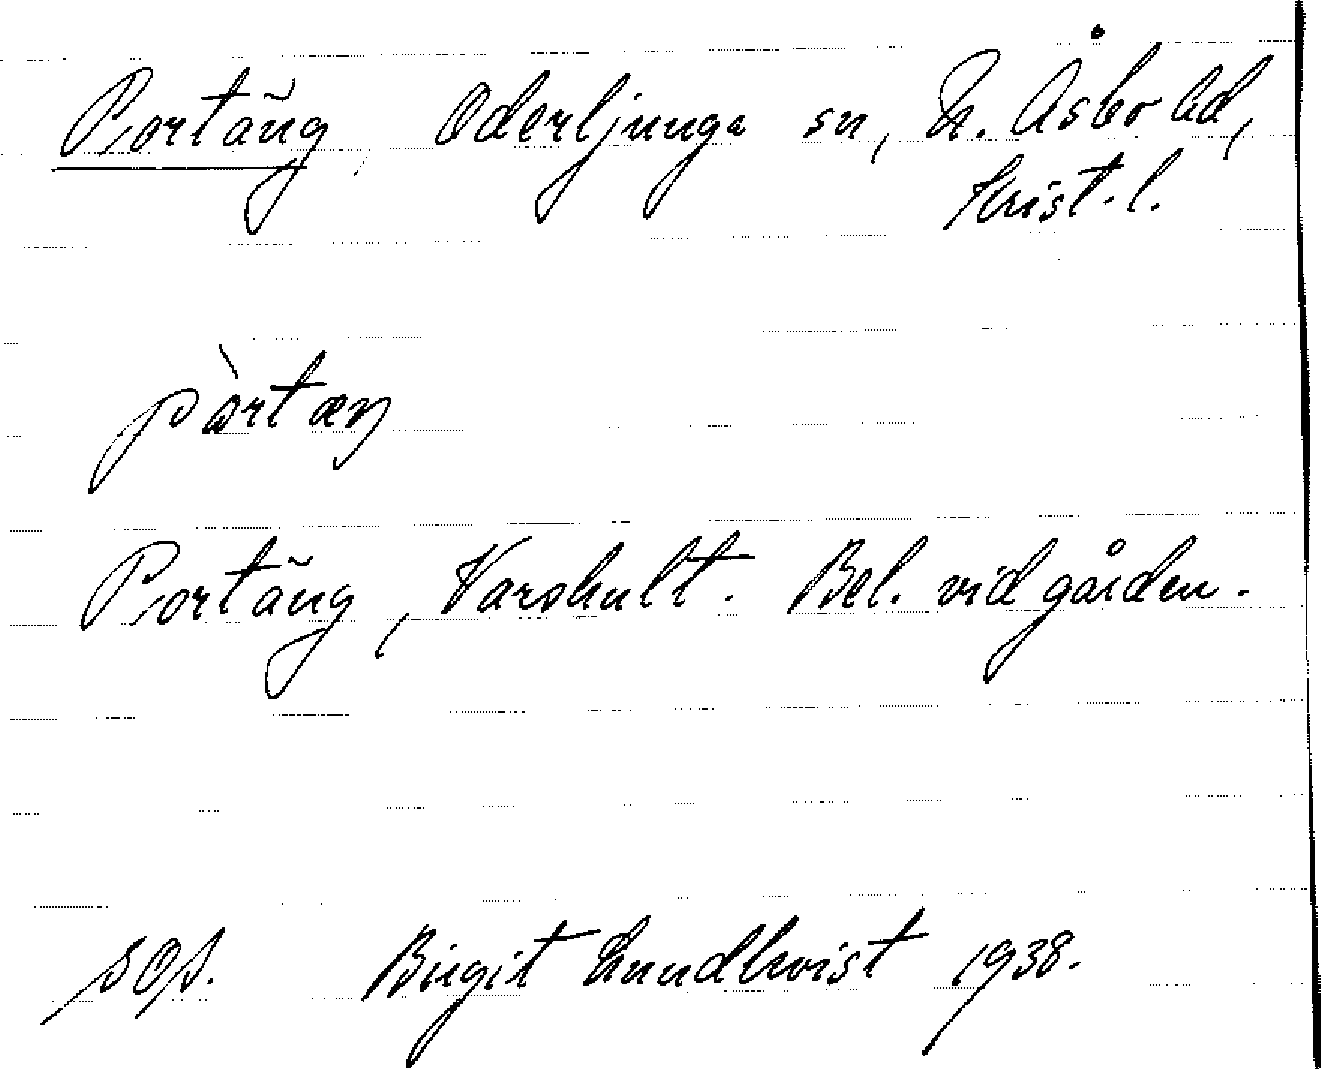 Portäng, Oderljunga sn, N. Åsbo hd,
Krist. l.
pòrtæŋ
Portäng, Varshult. Bel. vid gården.
sOs. Birgit Lundkvist 1938.